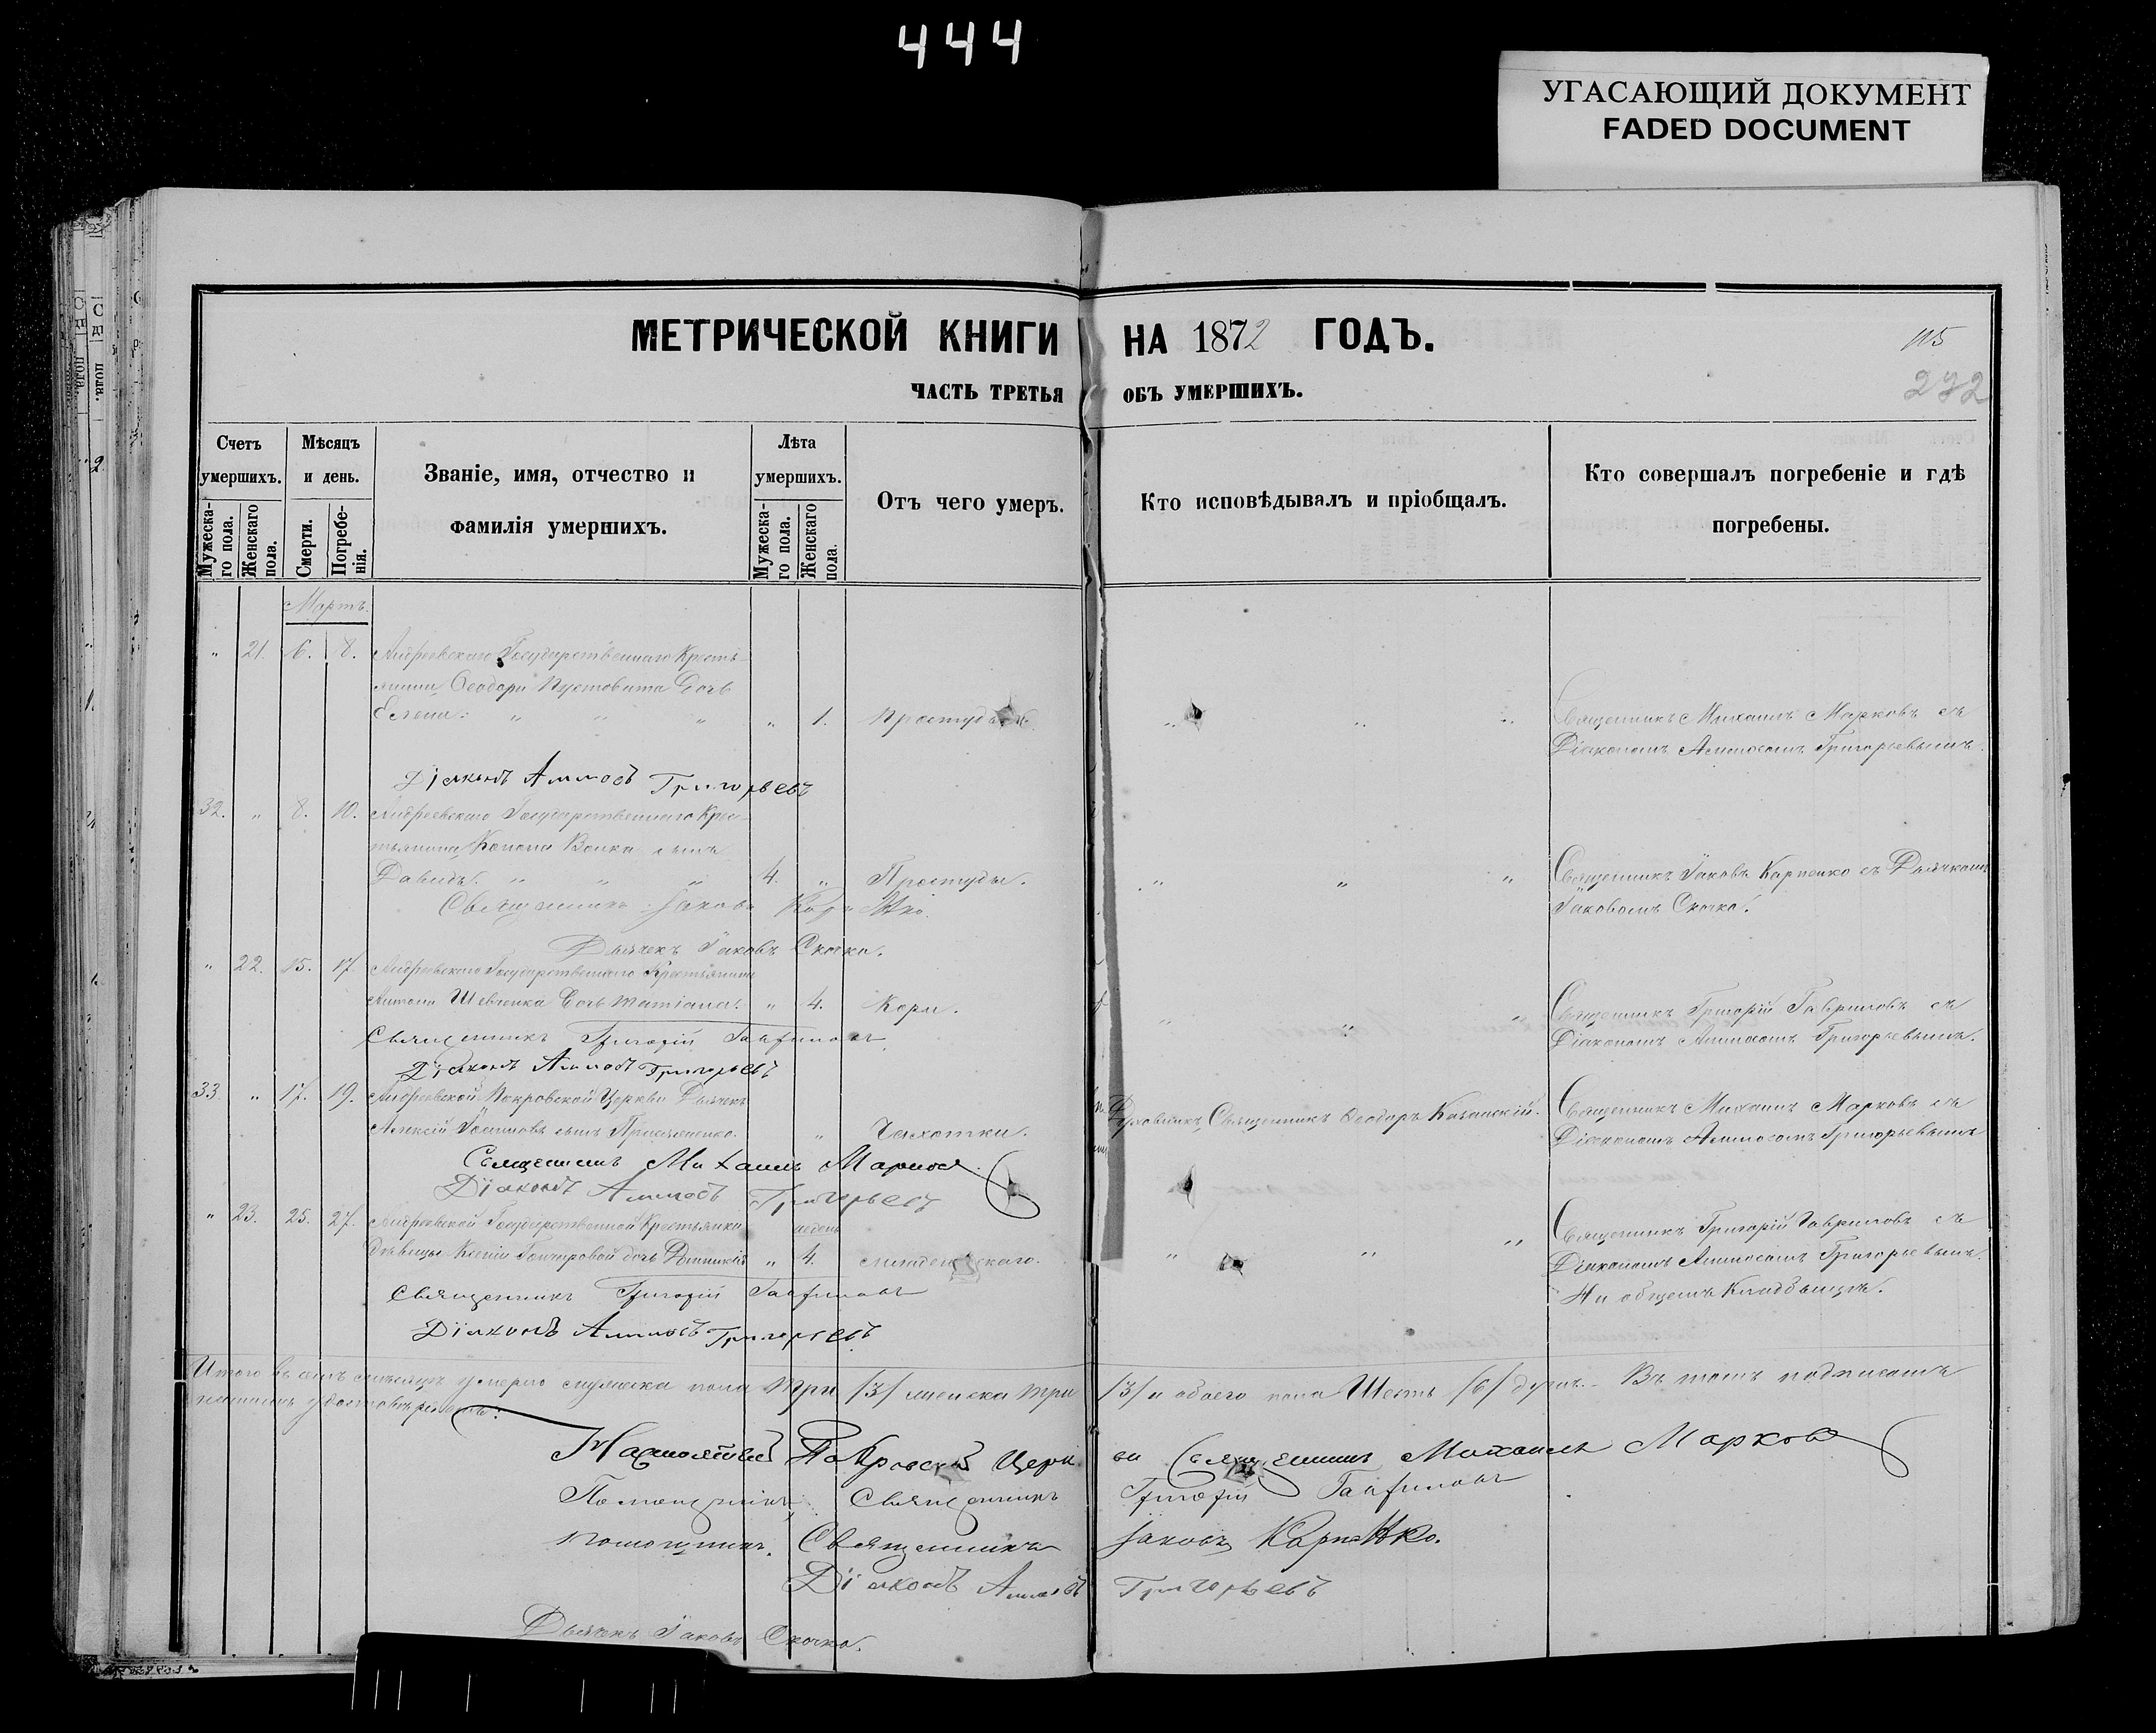 444
УГАСАЮЩИЙ ДОКУМЕНТ
FADED DOCUMENT
МЕТРИЧЕСКОЙ КНИГИ НА 1872 ГОДЪ.
115
ЧАСТЬ ТРЕТЬЯ ОБЪ УМЕРШИХЪ.
272
Счетъ умершихъ.
Мужеска-го пола.
Женскаго пола.
Мѣсяцъ и день.
Смерти.
Погребе-нія.
Званіе, имя, отчество и
фамилія умершихъ.
Лѣта умершихъ.
Мужеска-го пола.
Женскаго пола.
Отъ чего умеръ.
Кто исповѣдывалъ и пріобщалъ.
Кто совершалъ погребеніе и гдѣ
погребены.
Мартъ.
" 21. 6. 8. Андреевскаго Государственнаго Кресть-
янина Ѳеодора Пустовита дочь
Елена. " " " " 1. Простуды. " " " Священникъ Михаилъ Марковъ съ
Діакономъ Аммосомъ Григорьевымъ.
Діаконъ Аммосъ Григорьевъ
32. " 8. 10. Андреевскаго Государственнаго Крес-
тьянина Конона Вовка сынъ
Давидъ. " " " 4. " Простуды. " " " Священникъ Іаковъ Карпенко съ Дьячкомъ
Іаковомъ Скочко.
Священникъ Іаковъ Карпенко.
Дьячекъ Іаковъ Скочко.
" 22. 15. 17. Андреевскаго Государственнаго Крестьянина
Антона Шевченка дочь Татіана. " 4. Кори. " " " Священникъ Григорій Гавриловъ съ
Діакономъ Аммосомъ Григорьевымъ.
Священникъ Григорій Гавриловъ
Діаконъ Аммосъ Григорьевъ
33. " 17. 19. Андреевской Покровской Церкви Дьячекъ
Алексій сынъ " Чахотки. Духовникъ Священникъ Ѳеодоръ Казанскій. Священникъ Михаилъ Марковъ съ
Діакономъ Аммосомъ Григорьевымъ
Священникъ Михаилъ Марковъ
Діаконъ Аммосъ Григорьевъ
" 23. 25. 27. Андреевской Государственной Крестьянки
дѣвицы Ксеніи дочь " 4. " " " Священникъ Григорій Гавриловъ съ
Діакономъ Аммосомъ Григорьевымъ.
На общемъ Кладбищѣ.
Священникъ Григорій Гавриловъ
Діаконъ Аммосъ Григорьевъ.
Итого въ мѣсяцѣ умерло мужеска пола три /3/ женска три /3/ и обоего пола Шесть /6/ душъ. Въ томъ подписомъ
удостовѣряемъ:
Покровской Церкви Священникъ Михаилъ Марковъ
Помощникъ Священникъ Григорій Гавриловъ
помощникъ. Священникъ Іаковъ Карпенко.
Діаконъ Аммосъ Григорьевъ
Дьячекъ Іаковъ Скочко.